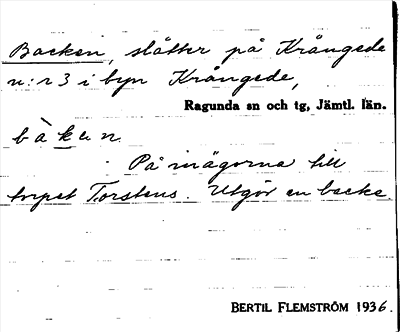 Backen, slåtter på Krångede
n:r 3 i byn Krångede,
Ragunda sn och tg, Jämtl. län.
bàken
På inägorna till
torpet Torstens. Utgör en backe.
BERTIL FLEMSTRÖM 1936.